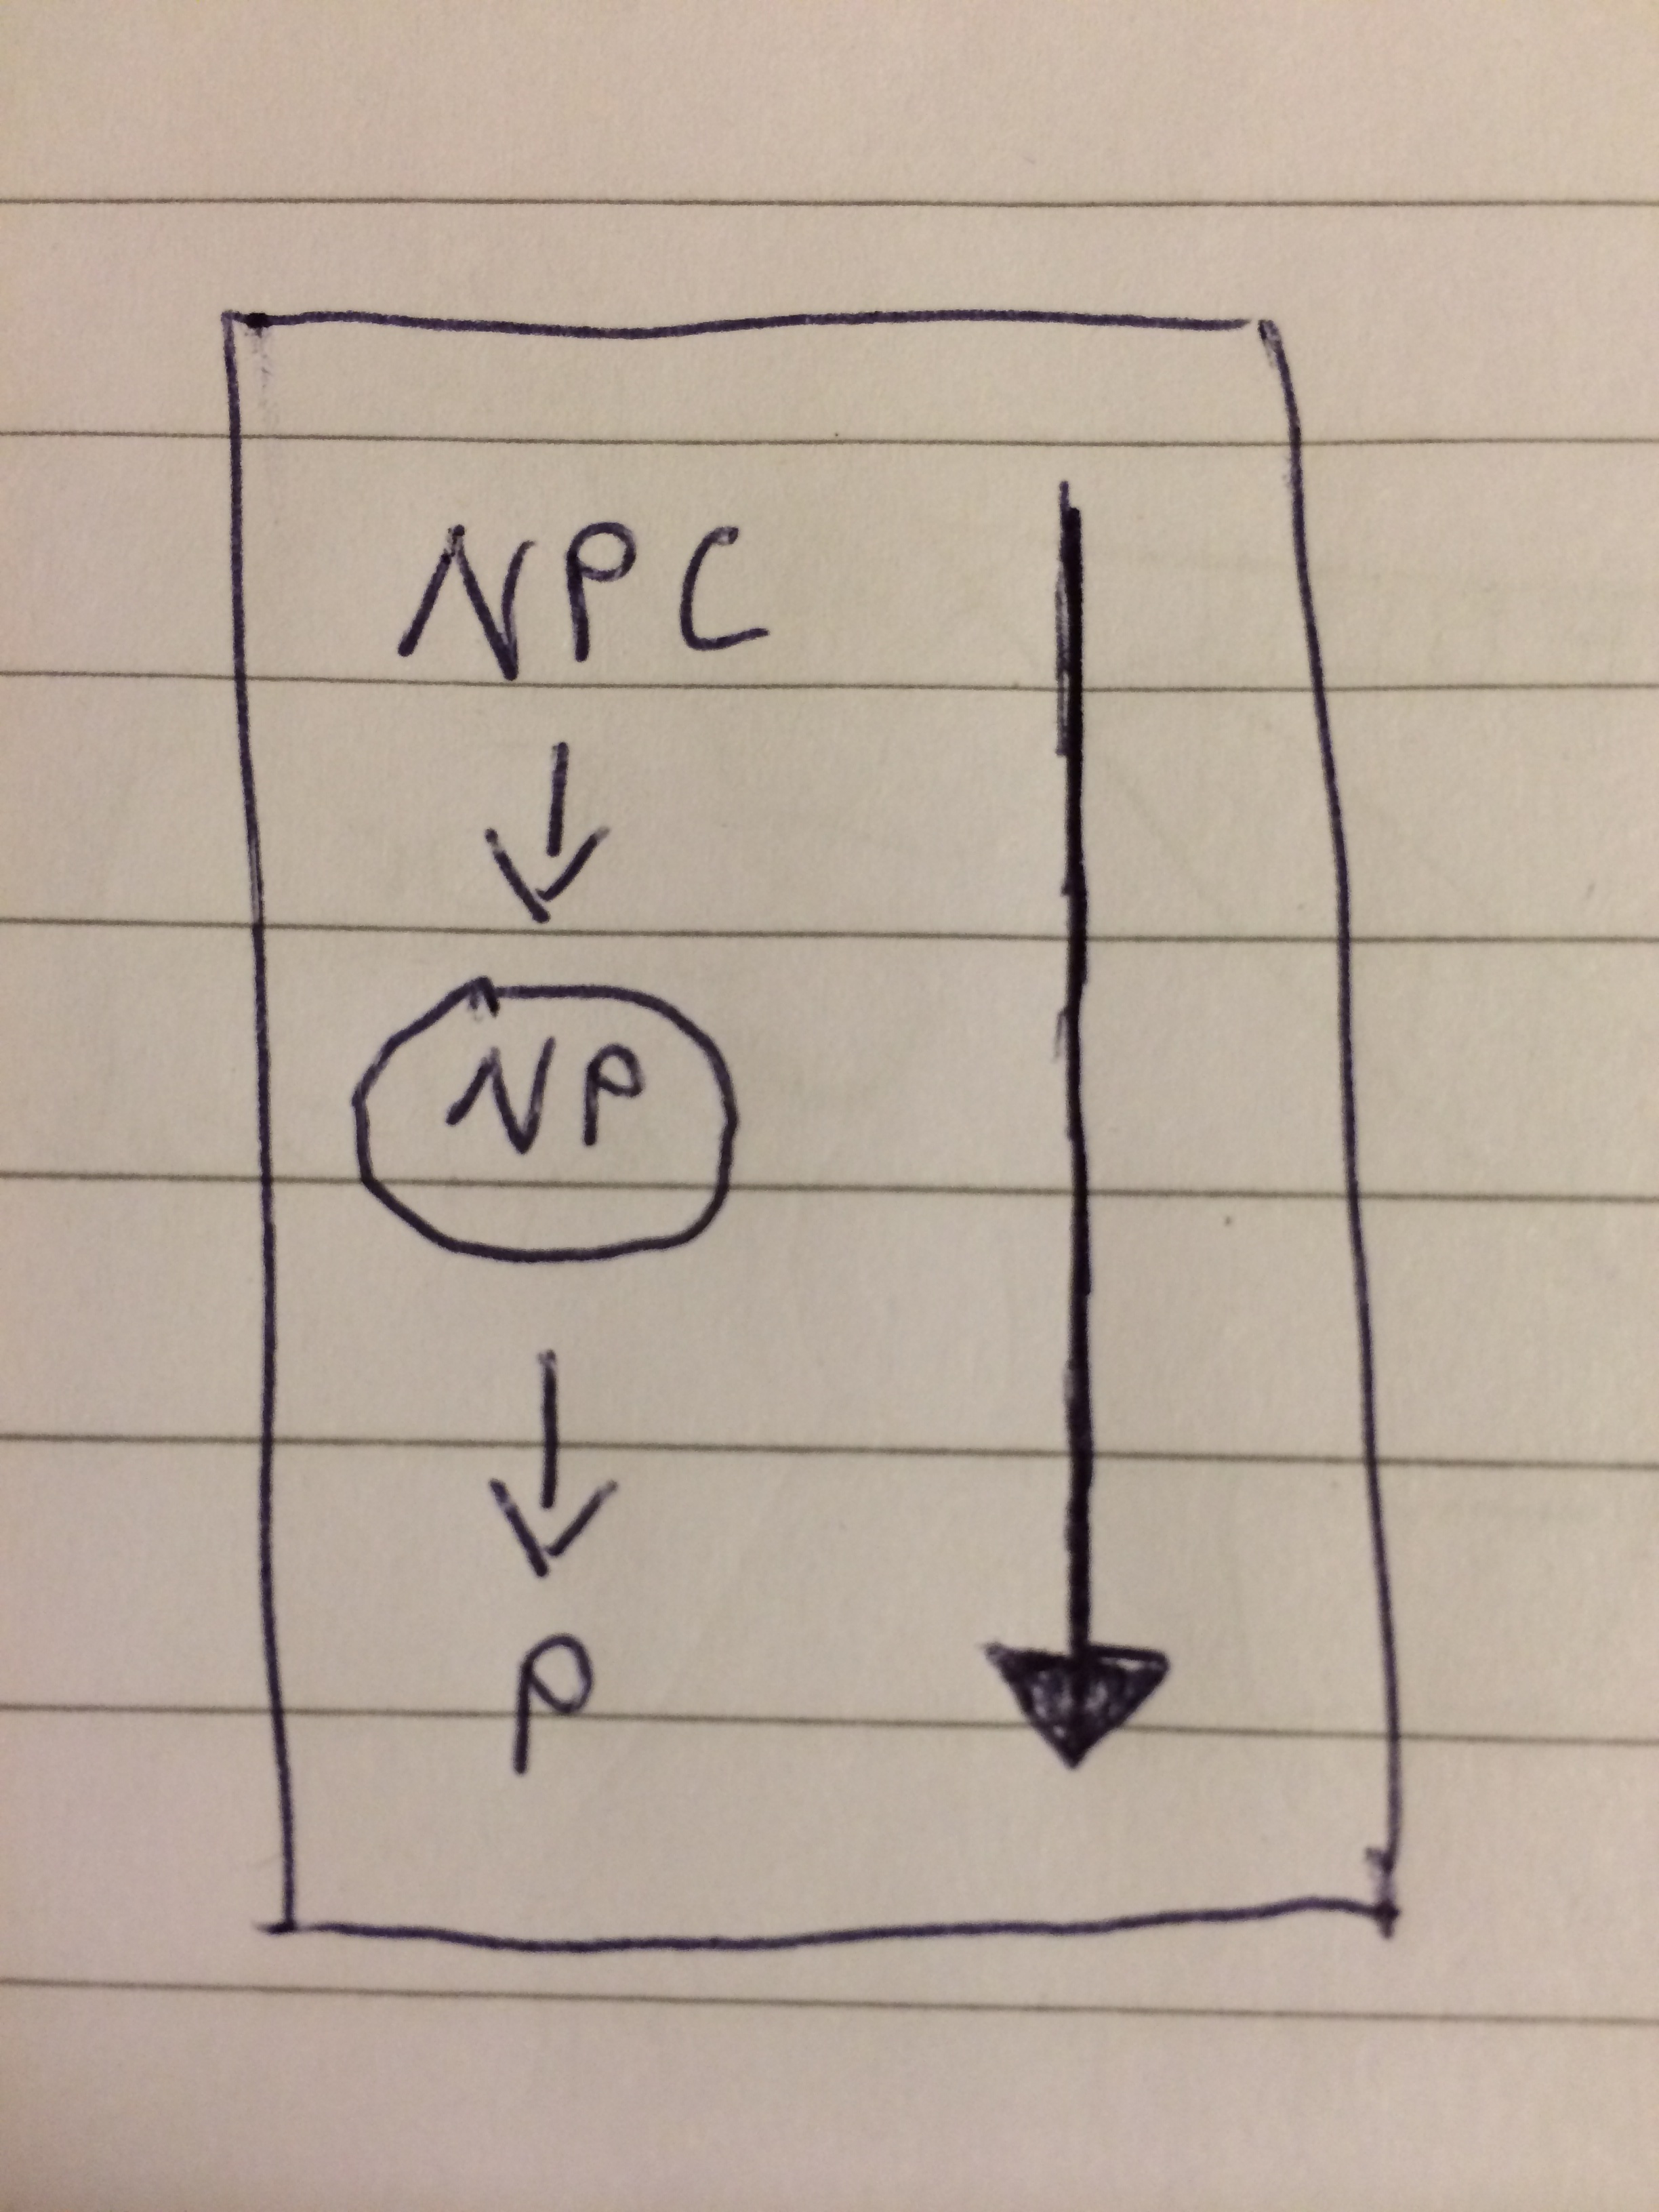 NPC
NP
P